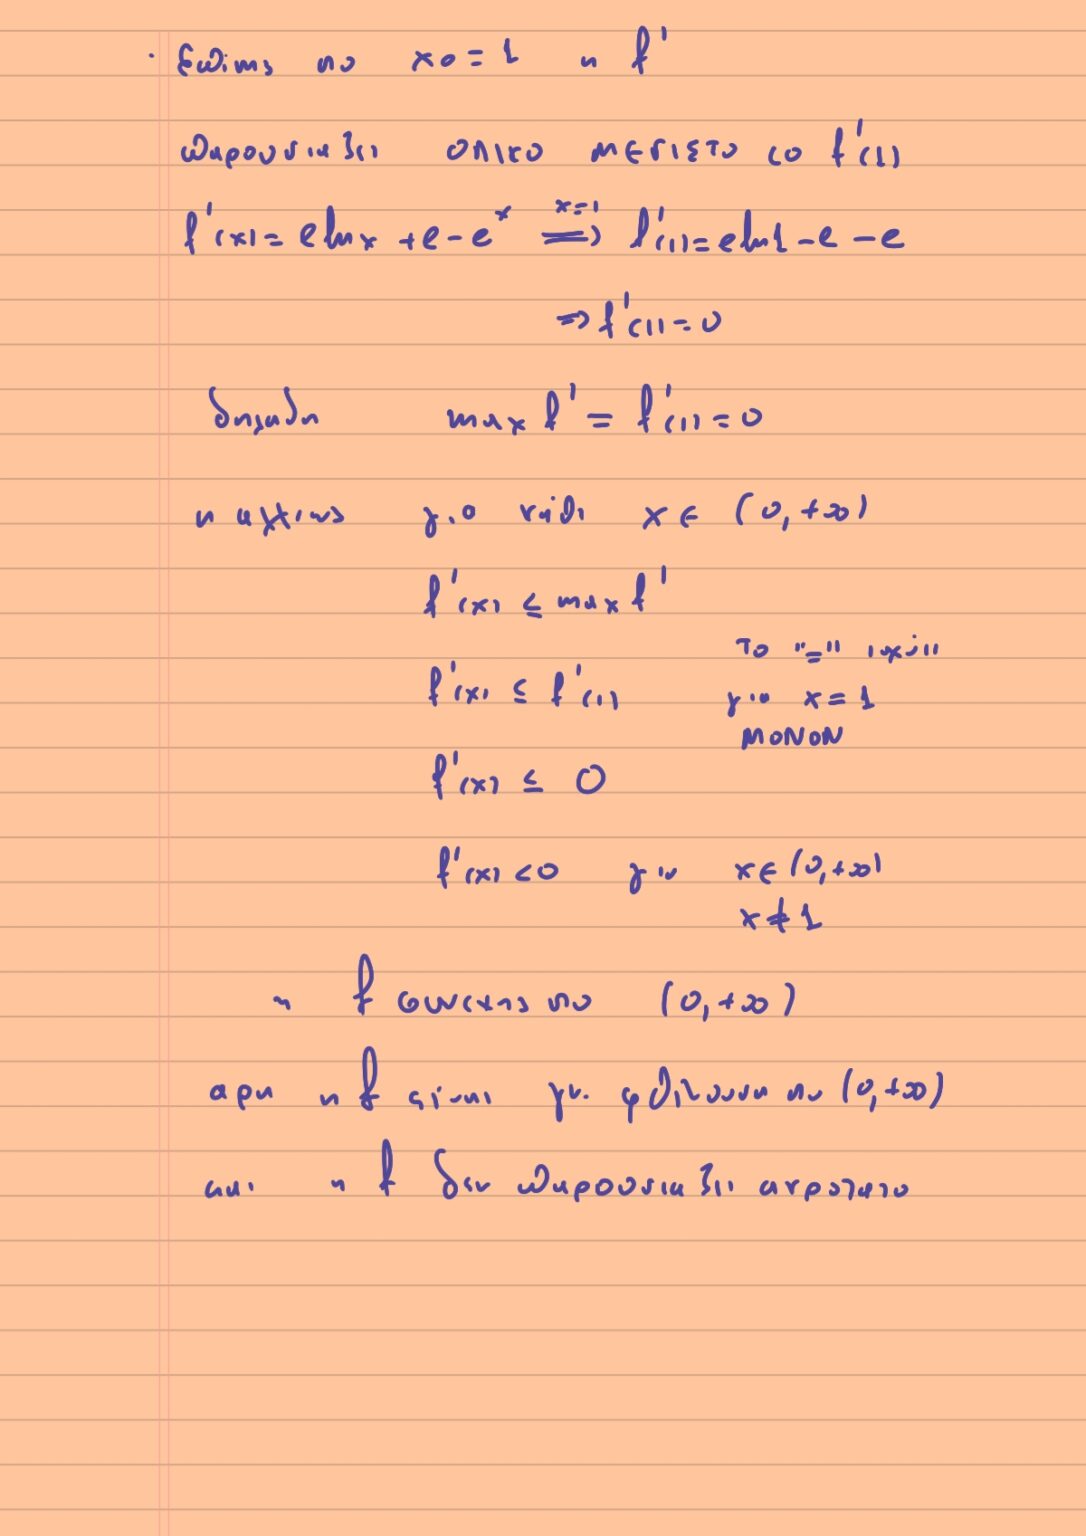 · Επίσης στο x0 = 1 η f'
παρουσιάζει ολικο μεγιστο το f'(1)
f'(x) = elnx + e - e^x x=1 ⟹ f'(1) = eln1 - e - e
⇒ f'(1) = 0
δηλαδη max f' = f'(1) = 0
για κάθε x ∈ (0, +∞)
f'(x) ≤ max f'
f'(x) ≤ f'(1) το "=" ισχύει
για x = 1
ΜΟΝΟΝ
f'(x) ≤ 0
f'(x) < 0 για x ∈ (0, +∞)
x ≠ 1
η f συνεχης στο (0, +∞)
αρα η f είναι γν. φθίνουσα στο (0, +∞)
και η f δεν παρουσιαζει ακροτατο